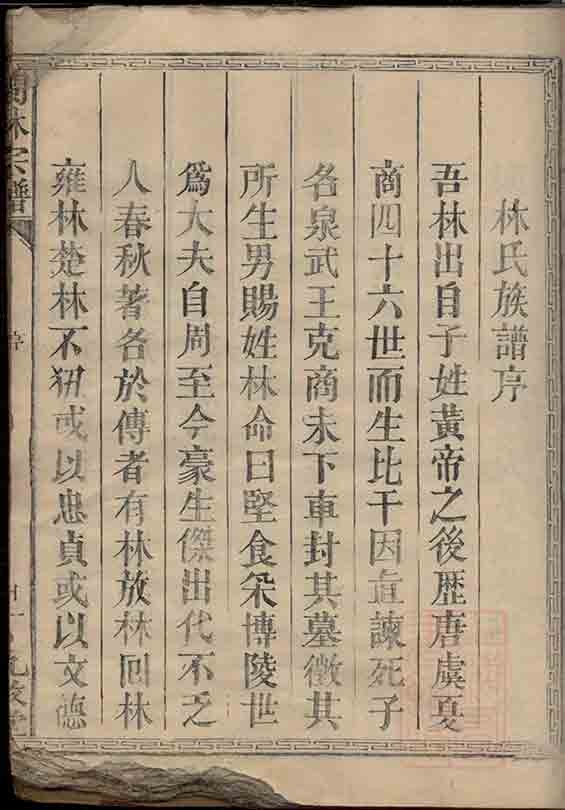 林氏族譜序
吾林出自子姓黃帝之後歷唐虞夏
商四十六世而生比干因直諫死子
名泉武王克商未下車封其墓徵其
所生男賜姓林命曰堅食采博陵世
爲大夫自周至今豪生傑出代不乏
人春秋著名於傳者有林放林回林
雍林楚林不狃或以忠貞或以文德
林宗譜
序